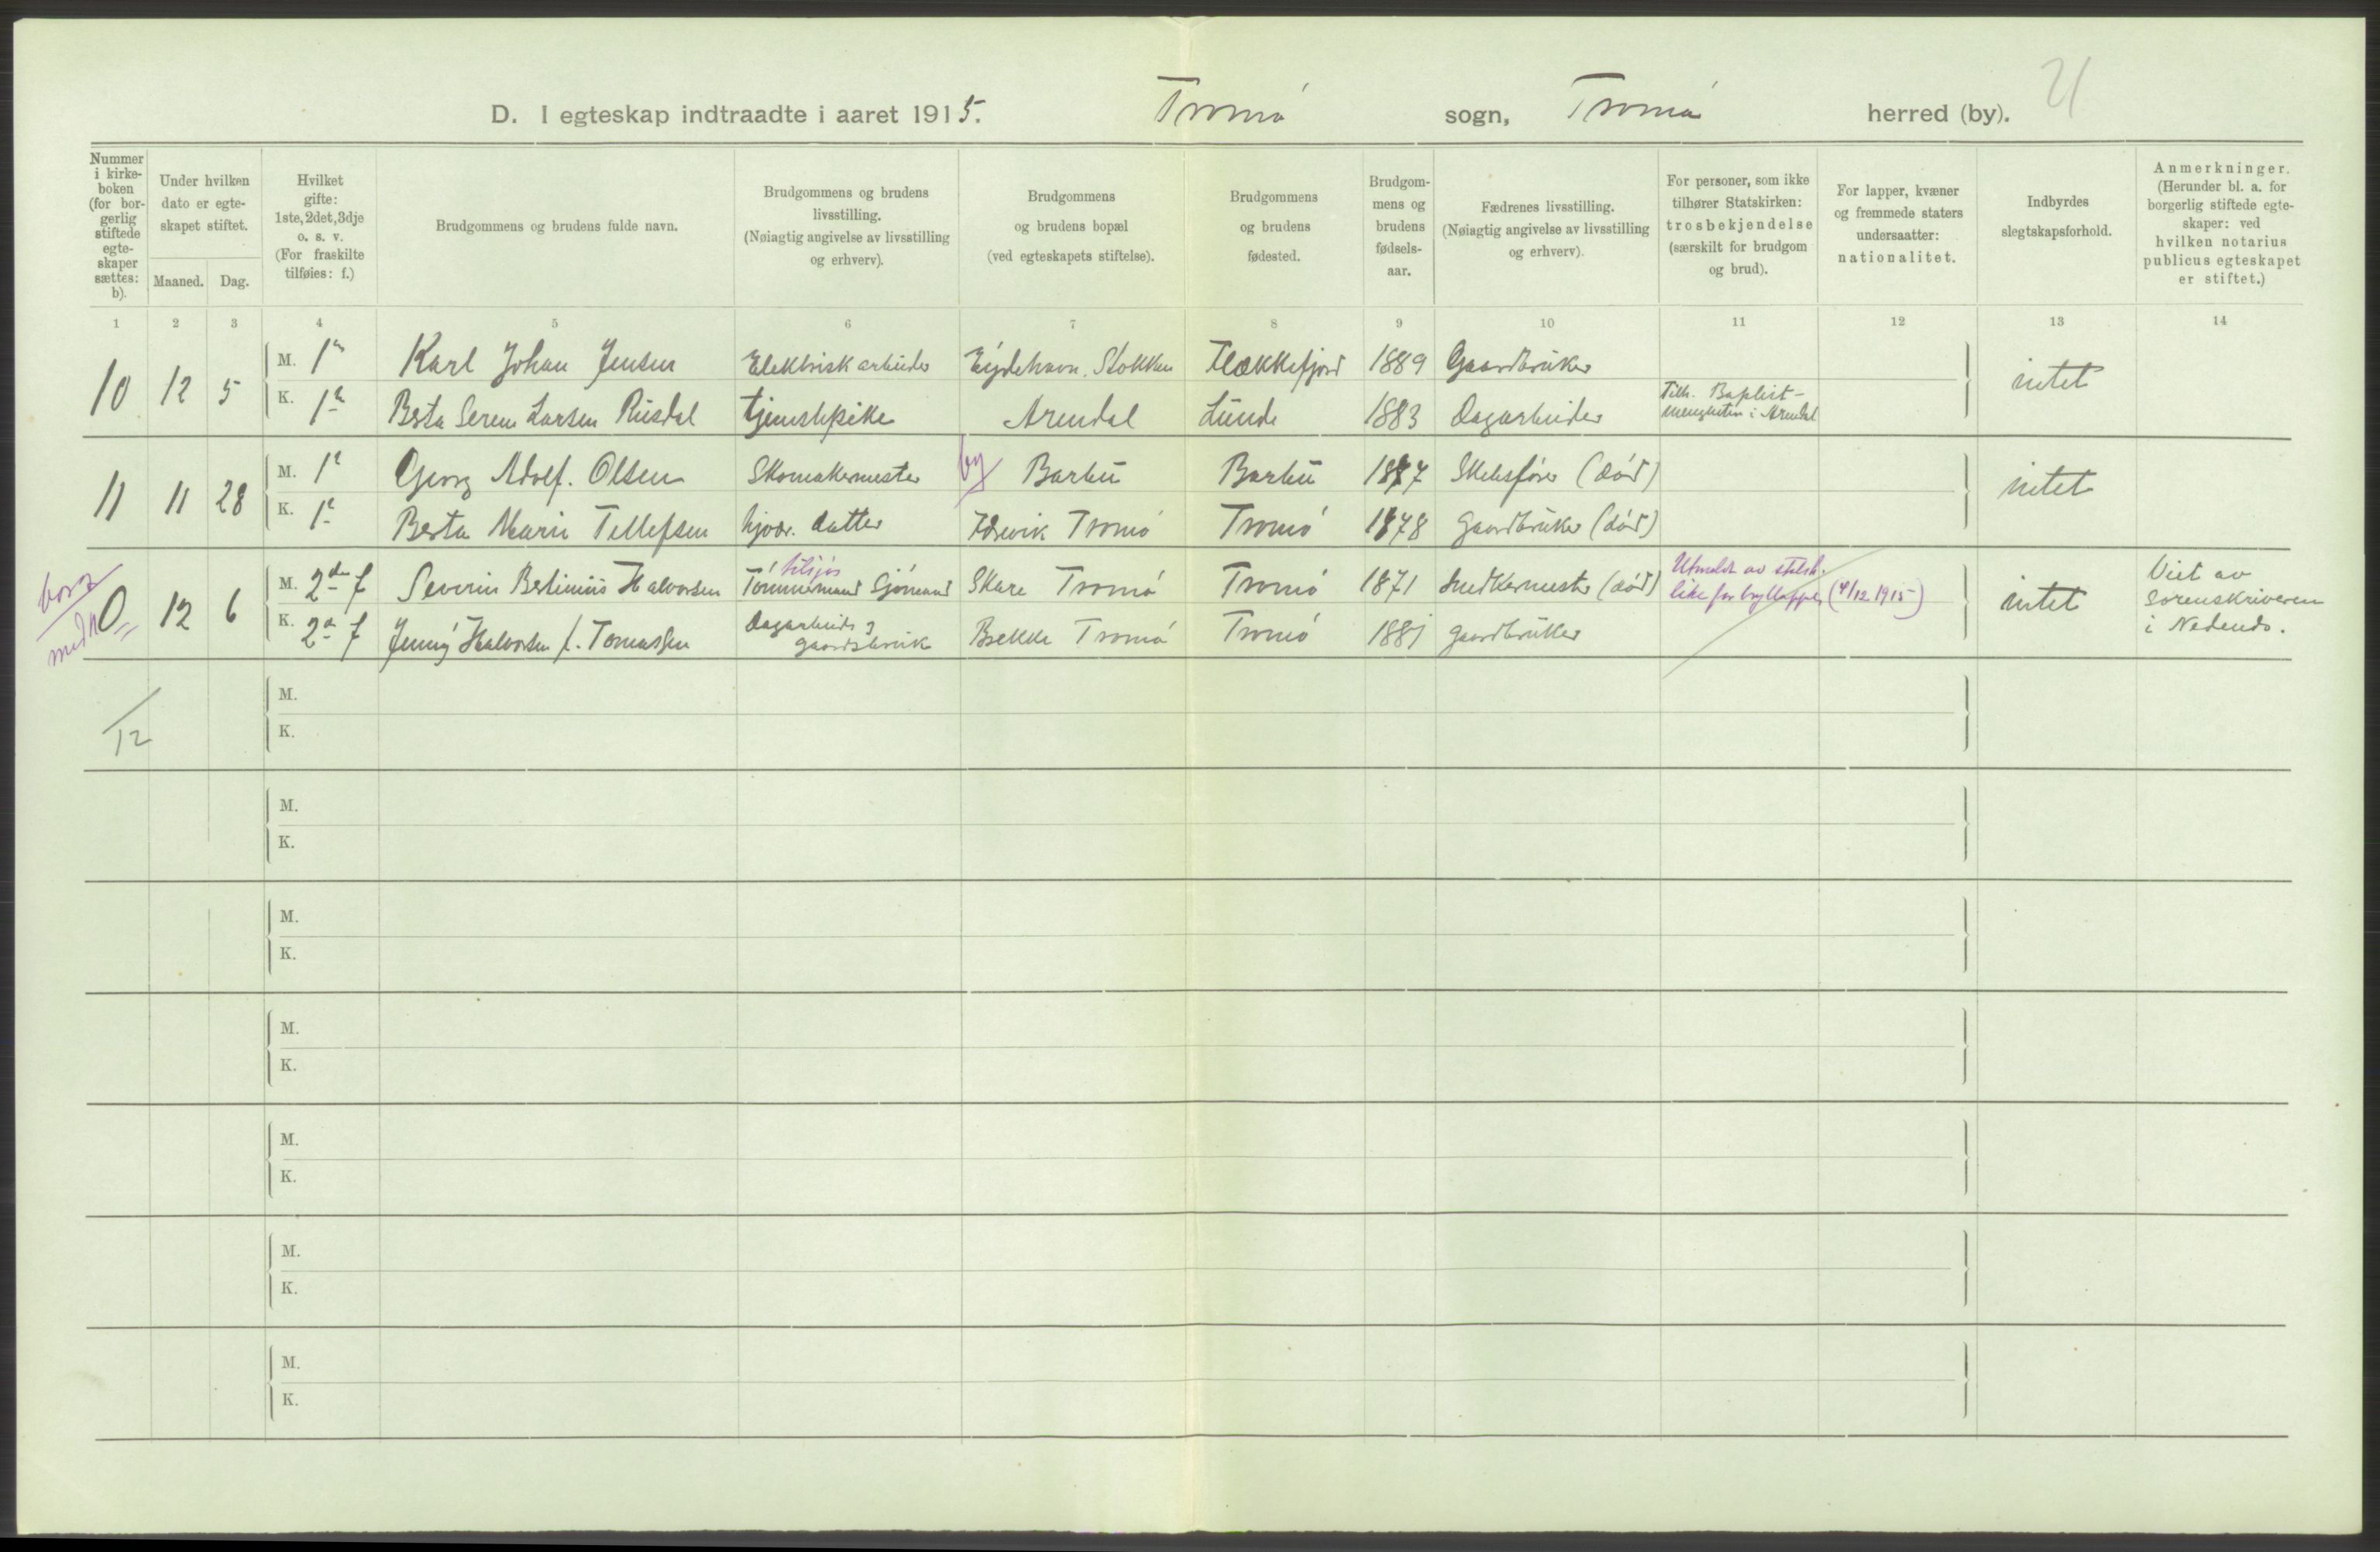 D. I egteskap indtraadte i aaret 1915. Tromø sogn, Tromø herred (by). 21
Nummer i kirke-boken (for bor-gerlig stiftede egte-skaper sættes: b).
Under hvilken dato er egte-skapet stiftet.
Maaned. Dag.
Hvilket gifte: 1ste, 2det, 3dje o. s. v. (For fraskilte tilføies: f.)
Brudgommens og brudens fulde navn.
Brudgommens og brudens livsstilling. (Nøiagtig angivelse av livsstilling og erhverv).
Brudgommens og brudens bopæl (ved egteskapets stiftelse).
Brudgommens og brudens fødested.
Brudgom-mens og brudens fødsels-aar.
Fædrenes livsstilling. (Nøiagtig angivelse av livsstilling og erhverv).
For personer, som ikke tilhører Statskirken: trosbekjendelse (særskilt for brudgom og brud).
For lapper, kvæner og fremmede staters undersaatter: nationalitet.
Indbyrdes slegtskapsforhold.
Anmerkninger. (Herunder bl. a. for borgerlig stiftede egte-skaper: ved hvilken notarius publicus egteskapet er stiftet.)
1 2 3 4 5 6 7 8 9 10 11 12 13 14
10 12 5 M. 1ste Karl Johan Jensen Elektrisk arbeider Eydehavn, Stokken Flækkefjord 1889 Gaardbruker intet
K. 1ste Berta Serene Larsen Rusdal tjenestepike Arendal Lunde 1883 Dagarbeider Tilh. Baptist-menigheten i Arendal
11 11 28 M. 1ste Georg Adolf. Olsen Skomakermester by Barbu Barbu 1877 Skibsfører (død) intet
K. 1ste Berta Marie Tellefsen hjvær. datter Tromø Tromø 1878 Gaardbruker (død)
borg
med
0 12 6 M. 2det f Severin Bertinius Halvorsen Tømmermand tilsjøs Sjømand Skare Tromø Tromø 1871 Snedkermester (død) Utmeldt av statsk. like før brylluppet (4/12 1915) intet Viet av Sorenskriveren i Nedenes.
K. 2det f Jenny Halvorsen f. Tomassen Dagarbeide & gaardsbruk Brekke Tromø Tromø 1881 gaardbruker
12
M.
K.
M.
K.
M.
K.
M.
K.
M.
K.
M.
K.
M.
K.